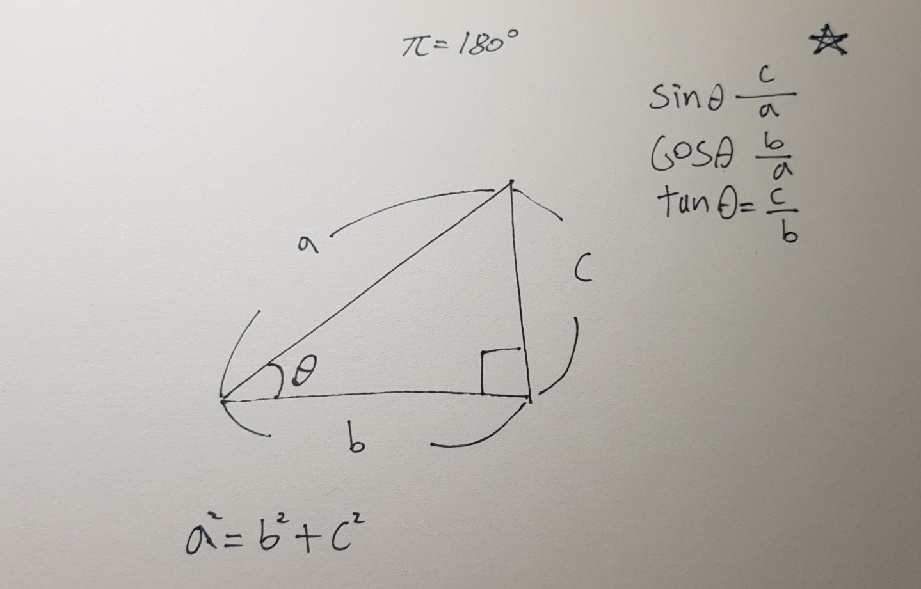 π=180°
☆
sinθ c/a
cosθ b/a
tanθ= c/b
a
c
θ
b
a²=b²+c²